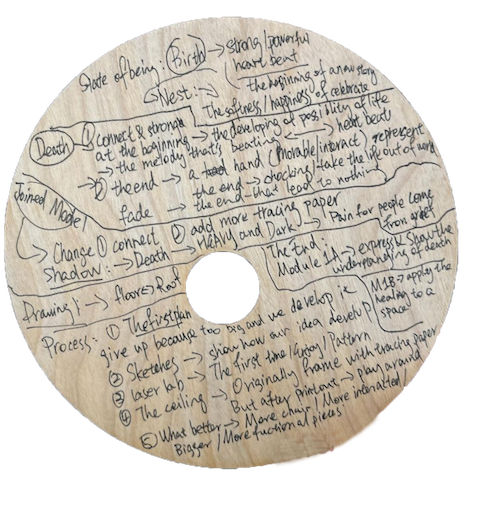 State of being: Birth → strong/powerful
heart beat
Nest: → the beginning of a new story
The softness/happiness of celebrate
Death → ① connect & stronge → the developing of possibility of life
at the beginning
→ the melody that's beating ← → heart beat
→ ② the end → a hand (movable/interact) represent
the end → chocking/take the life out of
fade → the end that lead to nothing
Joined Model
→ Change ① connect ② add more tracing paper
Shadow: → Death → HEAVY and Dark → Pain for people come
from
The End:
Module 1A → express & show the
understanding of death
M1B → apply the
healing to a
space
Drawing: → floor → Roof
Process: ① The first pun
give up because too big, and we develop
② Sketches → show how our idea develop
③ laser lab → The first time / / Pattern
④ The ceiling → Originally frame with tracing paper
But after printout → play around
⑤ What better → More chair / More interacted /
Bigger / More fuctional pieces